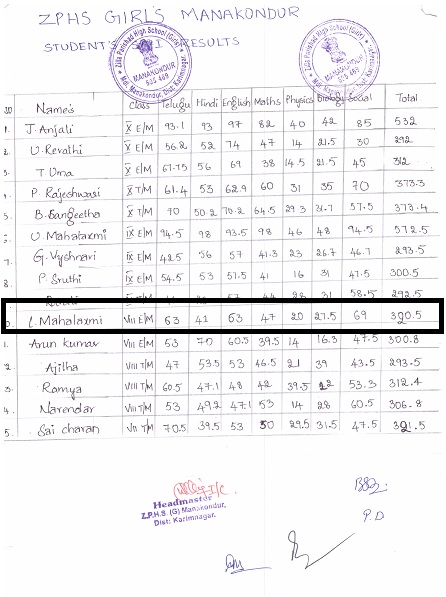 ZPHS GIRL'S MANAKONDUR
STUDENT'S RESULTS
Name's Class Telugu Hindi English Maths Physics Biology Social Total
1. J. Anjali X E/M 93.1 93 97 82 40 42 85 532
2. U. Revathi X E/M 56.2 52 74 47 14 21.5 30 292
3. T. Uma X E/M 67.75 56 69 38 14.5 21.5 45 312
4. P. Rajeshwari X T/M 61.4 53 62.9 60 31 35 70 373.3
5. B. Sangeetha X T/M 70 50.2 70.2 64.5 29.3 31.7 57.5 373.4
U. Mahalaxmi IX E/M 94.5 98 93.5 98 46 48 94.5 572.5
7. G. Vyshnavi IX E/M 42.5 56 57 41.3 23 26.7 46.7 293.5
8. P. Sruthi IX E/M 54.5 53 57.5 41 16 31 47.5 300.5
28 31 58.5 292.5
L. Mahalaxmi VIII E/M 63 41 63 47 20 27.5 69 320.5
1. Arun kumar VIII E/M 53 70 60.5 39.5 14 16.3 47.5 300.8
2. Ajilha VIII T/M 47 53.5 53 46.5 21 39 43.5 293.5
3. Ramya VIII T/M 60.5 47.1 48 42 39.5 22 53.3 312.4
4. Narendar VIII T/M 53 49.2 47.1 53 14 28 60.5 306.8
5. Sai charan VII T/M 70.5 39.5 53 50 29.5 31.5 47.5 321.5
I/C
Headmaster
Z.P.H.S. (G) Manakondur,
Dist: Karimnagar.
P.D
Zilla Parishad High School (Girls)
MANAKONDUR